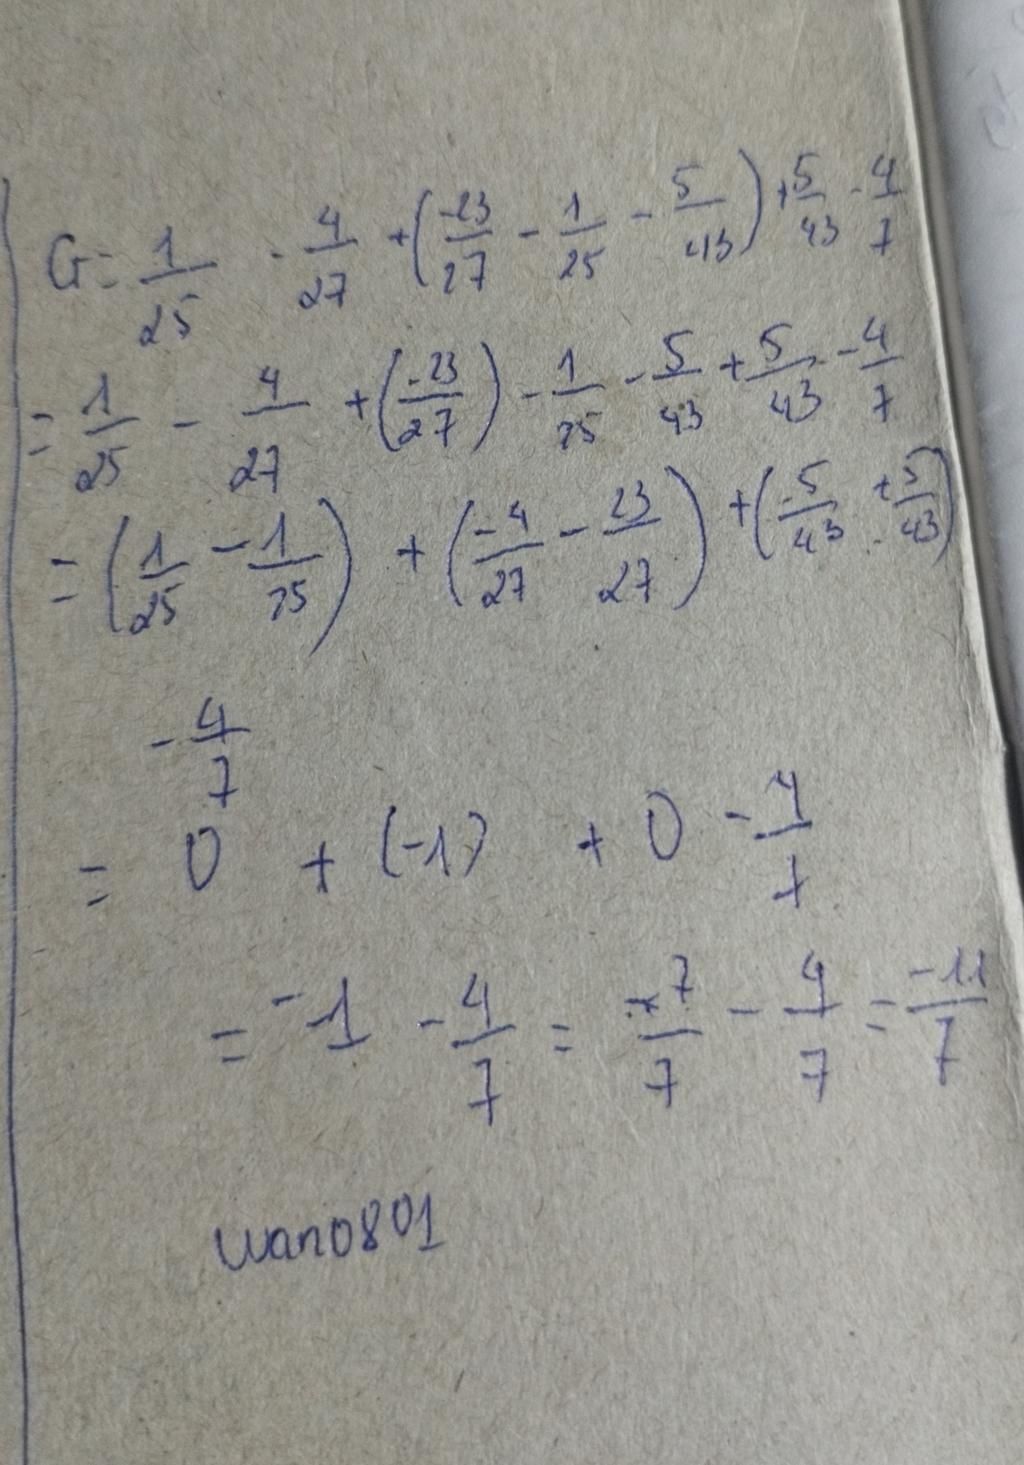 G = 1/25 - 4/27 + (-23/27 - 1/25 - 5/43) + 5/43 - 4/7
= 1/25 - 4/27 + (-23/27) - 1/25 - 5/43 + 5/43 - 4/7
= (1/25 - 1/25) + (-4/27 - 23/27) + (-5/43 + 5/43)
- 4/7
= 0 + (-1) + 0 - 4/7
= -1 - 4/7 = -7/7 - 4/7 = -11/7
wan0801